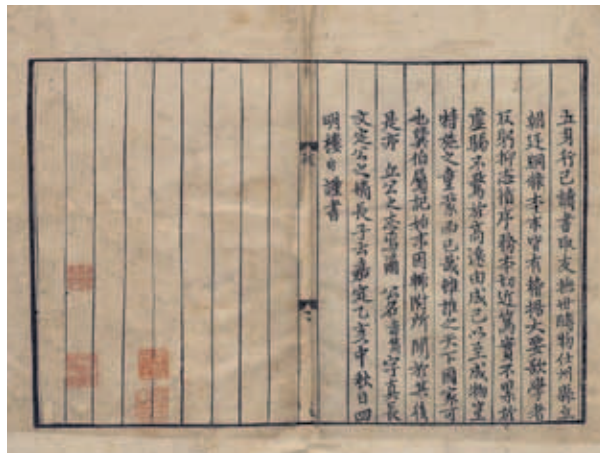 立身行己讀書取友撫世酬物仕州縣立
朝廷綱維本末皆有稽據大要欲學者
反躬抑志循序務本切近篤實不累於
虛驕不騖於高遠由成己以至成物豈
特施之童蒙而已哉雖推之天下國家可
也巽伯屬記始末因輒附所聞於其後
是亦 丘公之志焉爾 公名壽雋字真長
文定公之嫡長子云嘉定乙亥中秋日四
明樓昉謹書